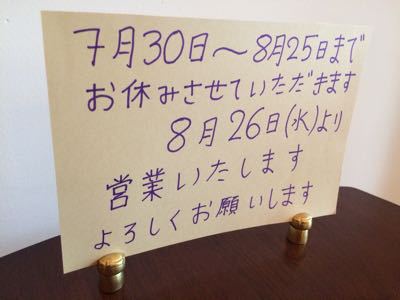 7月30日～8月25日まで
お休みさせていただきます
8月26日(水)より
営業いたします
よろしくお願いします